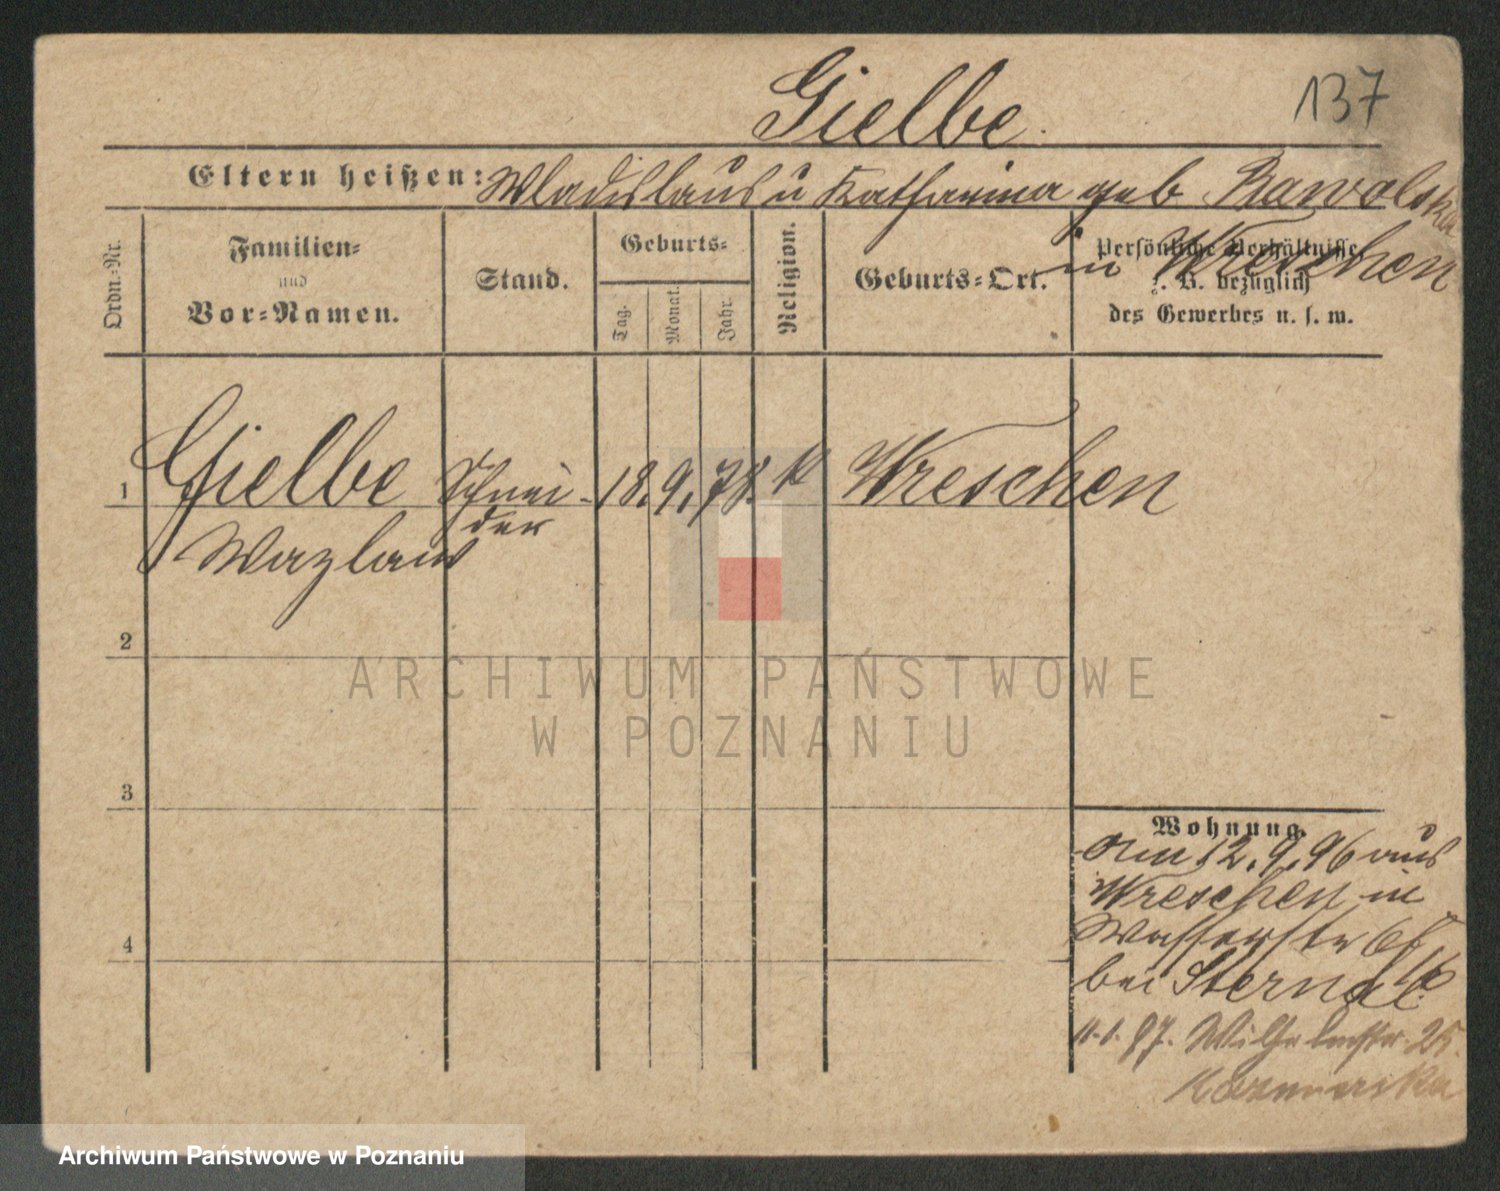 Gielbe.
137
Eltern heißen: Wladislaus u Katharina geb Rawolska
in Wreschen
Ordn.-Nr.
Familien-
und
Vor-Namen.
Stand.
Geburts-
Tag.
Monat.
Jahr.
Religion.
Geburts-Ort.
Persönliche Verhältnisse
z. B. bezüglich
des Gewerbes u. s. w.
1 Gielbe Schnei- 18. 9. 78. k Wreschen
der
Wazlaw
2
ARCHIWUM PAŃSTWOWE
W POZNANIU
3
Wohnung.
Am 12.9.96 aus
Wreschen in
Wasserstr
bei Sternal
11.1.97. Wilhelmstr. 25.
Archiwum Państwowe w Poznaniu